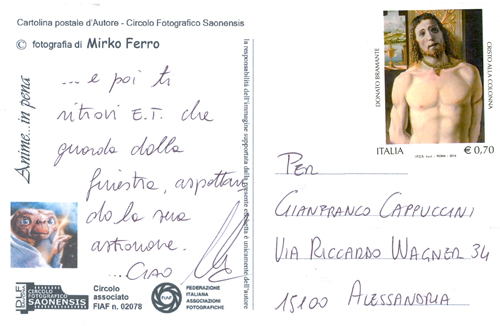 Cartolina postale d'Autore - Circolo Fotografico Saonensis
© fotografia di Mirko Ferro
Anime...in pena
... e poi ti
ritrovi E.T. che
guarda dalla
finestra, aspettan
do la sua
astronave.
... Ciao
la responsabilità dell'immagine supportata dalla presente cartolina è unicamente dell'autore
CIRCOLO
FOTOGRAFICO
SAONENSIS
Circolo
associato
FIAF n. 02078
FIAF
FEDERAZIONE
ITALIANA
ASSOCIAZIONI
FOTOGRAFICHE
DONATO BRAMANTE
CRISTO ALLA COLONNA
ITALIA
€ 0,70
PER
GIANFRANCO CAPPUCCINI
VIA RICCARDO WAGNER 34
15100 ALESSANDRIA